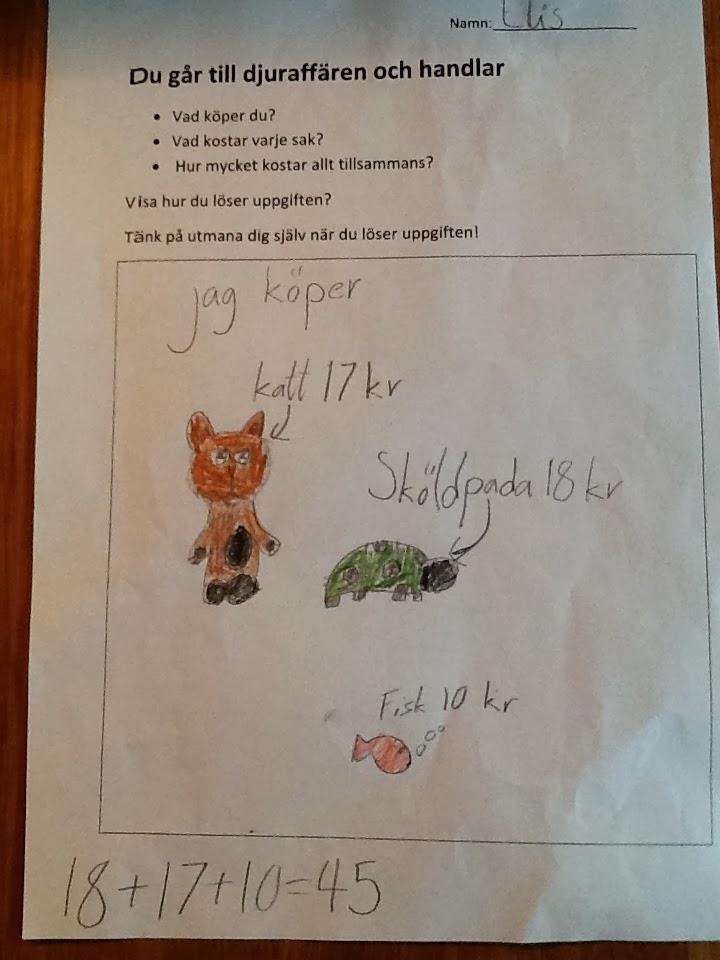 Namn: Elis
Du går till djuraffären och handlar
• Vad köper du?
• Vad kostar varje sak?
• Hur mycket kostar allt tillsammans?
Visa hur du löser uppgiften?
Tänk på utmana dig själv när du löser uppgiften!
jag köper
katt 17 kr
Sköldpada 18 kr
Fisk 10 kr
18+17+10=45